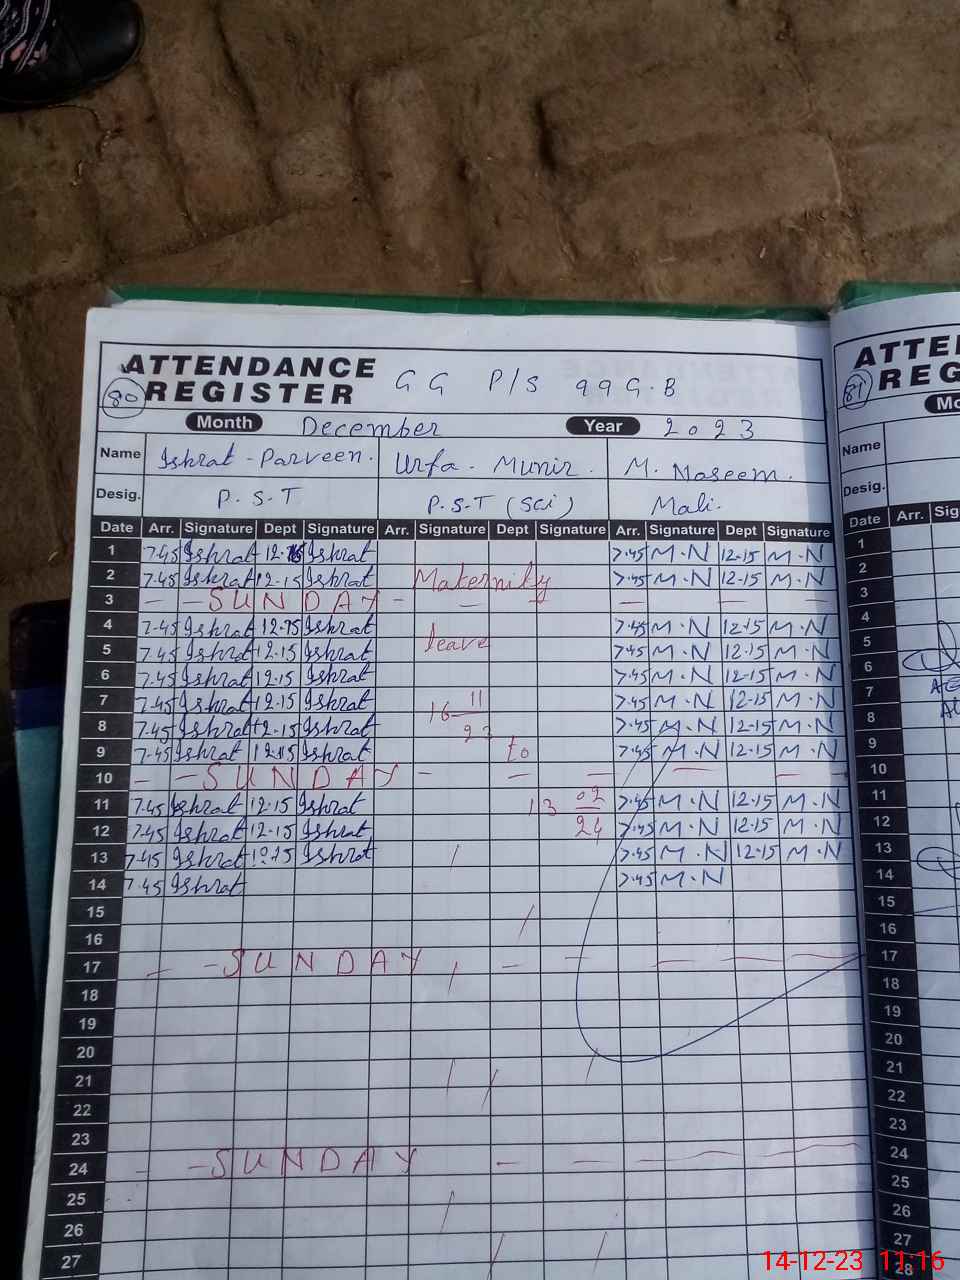 ATTENDANCE
REGISTER
80
G G P/S 99 G.B
Month December Year 2023
Name Ishrat - Parveen. Urfa - Munir. M. Naseem.
Desig. P.S.T P.S.T (Sci) Mali.
Date Arr. Signature Dept Signature Arr. Signature Dept Signature Arr. Signature Dept Signature
1 7.45 Ishrat 12.15 Ishrat 7.45 M.N 12-15 M.N
2 7.45 Ishrat 12.15 Ishrat Maternity 7.45 M.N 12-15 M.N
3 - - SUNDAY - - - - - -
4 7.45 Ishrat 12.15 Ishrat 7.45 M.N 12.15 M.N
5 7.45 Ishrat 12.15 Ishrat leave 7.45 M.N 12.15 M.N
6 7.45 Ishrat 12.15 Ishrat 7.45 M.N 12-15 M.N
7 7.45 Ishrat 12.15 Ishrat 16 11 7.45 M.N 12.15 M.N
8 7.45 Ishrat 12.15 Ishrat 23 7.45 M.N 12.15 M.N
9 7.45 Ishrat 12.15 Ishrat to 7.45 M.N 12.15 M.N
10 - - SUNDAY - - - - -
11 7.45 Ishrat 12.15 Ishrat 13 02 7.45 M.N 12.15 M.N
12 7.45 Ishrat 12.15 Ishrat 24 7.45 M.N 12.15 M.N
13 7.45 Ishrat 12.15 Ishrat 7.45 M.N 12.15 M.N
14 7.45 Ishrat 7.45 M.N
15
16
17 - - SUNDAY - - - - -
18
19
20
21
22
23
24 - - SUNDAY - - - - -
25
26
27
ATTE
REG
81
Mo
Name
Desig.
Date Arr. Sig
1
2
3
4
5
6
7
8
9
10
11
12
13
14
15
16
17
18
19
20
21
22
23
24
25
26
27
28
14-12-23 11:16